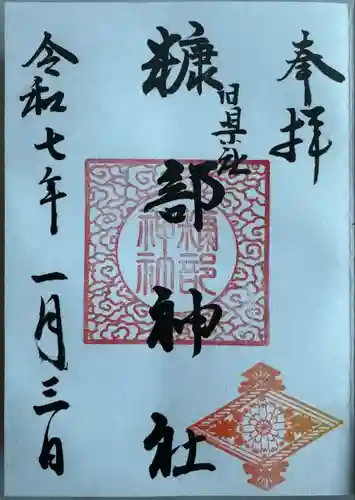 奉拝
旧県社
糠部神社
糠部
神社
令和七年 一月三日